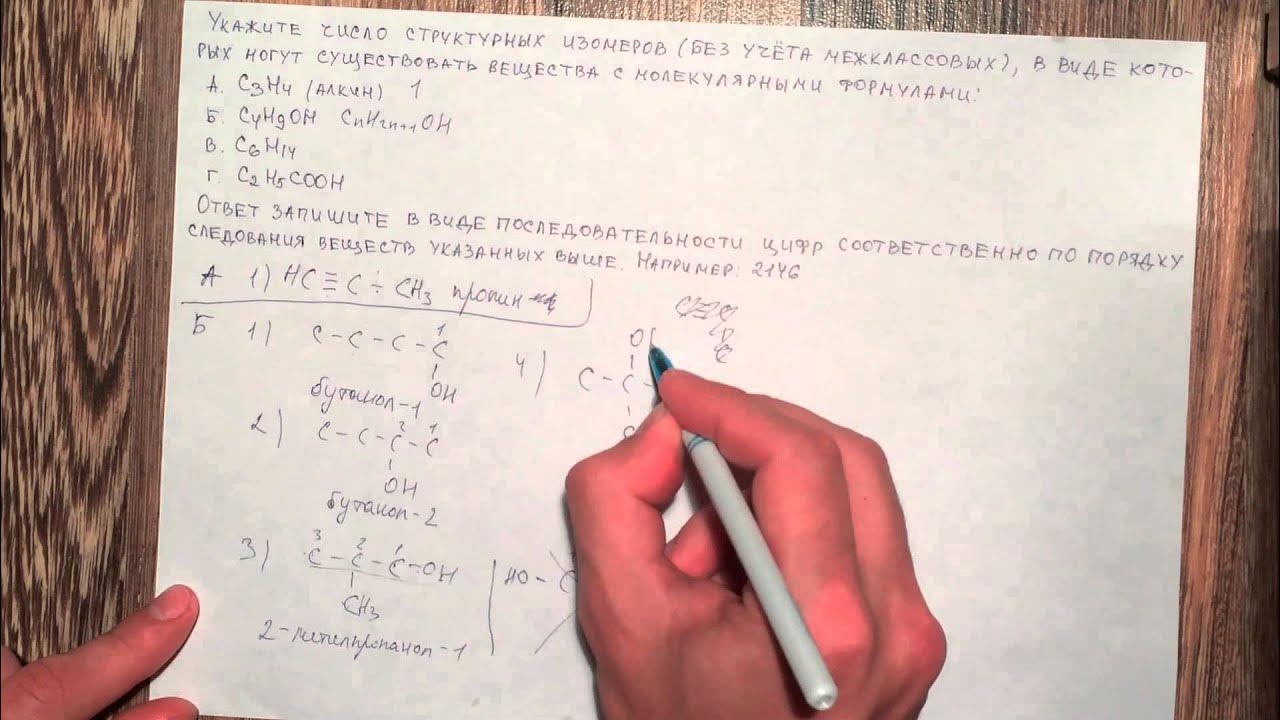 УКАЖИТЕ ЧИСЛО СТРУКТУРНЫХ ИЗОМЕРОВ (БЕЗ УЧЁТА МЕЖКЛАССОВЫХ), В ВИДЕ КОТО-
РЫХ МОГУТ СУЩЕСТВОВАТЬ ВЕЩЕСТВА С МОЛЕКУЛЯРНЫМИ ФОРМУЛАМИ:
А. C3H4 (АЛКИН) 1
Б. C4H9OH CnH2n+1OH
В. C6H14
Г. C2H5COOH
ОТВЕТ ЗАПИШИТЕ В ВИДЕ ПОСЛЕДОВАТЕЛЬНОСТИ ЦИФР СООТВЕТСТВЕННО ПО ПОРЯДКУ
СЛЕДОВАНИЯ ВЕЩЕСТВ УКАЗАННЫХ ВЫШЕ. НАПРИМЕР: 2146
А 1) HC ≡ C – CH3 пропин
Б 1) C – C – C – C
1
OH
бутанол-1
2) C – C – C – C
2 1
OH
бутанол-2
3) C – C – C – OH
3 2 1
CH3
2-метилпропанол-1
HO – C
4) C – C –
O
C